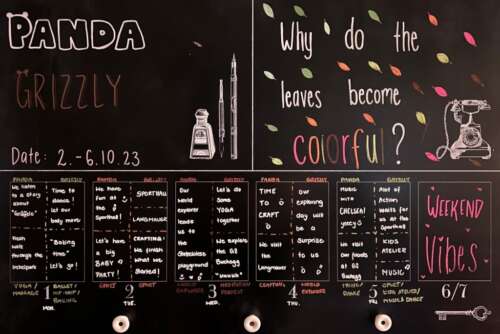 PANDA
GRIZZLY
Date: 2.-6.10.23
Why do the
leaves become
colorful?
PANDA GRIZZLY
We listen
to a story
about
Time to
dance,
let our
body move
Yoga
through the
"Baking
time"
Let's go!
YOGA/
MASSAGE
BALLET/
HIP-HOP/
BAKING
1
MON.
PANDA GRIZZLY
We have
fun at
the
Sporthall!
SPORTHALL
LANGHAUER
Let's have
a big
BABY
PARTY!
CRAFTING:
We finish
what we
started!
SPORT
SPORT/
CRAFTING
2
TUE.
PANDA GRIZZLY
Our
world
explorer
leads
us to
the
playground.
Let's do
some
YOGA
together
We explore
the GZ
Buchegg
WORLD EXPLORER
3
WED.
PANDA GRIZZLY
TIME
TO
CRAFT
We visit
the
our
exploring
day will
be a
Surprise
to us
CRAFTING
WORLD
EXPLORER
4
THU.
PANDA GRIZZLY
MUSIC
WITH
CHELSEA!
yeey
A lot of
Action
waits for
us at the
Sporthall
We visit
our friends
at GZ
Buchegg
KIDS
ATELIER
MUSIC
DANCE
SPORT/
KIDS ATELIER/
MUSIC & DANCE
5
FRI.
WEEKEND
Vibes
6/7